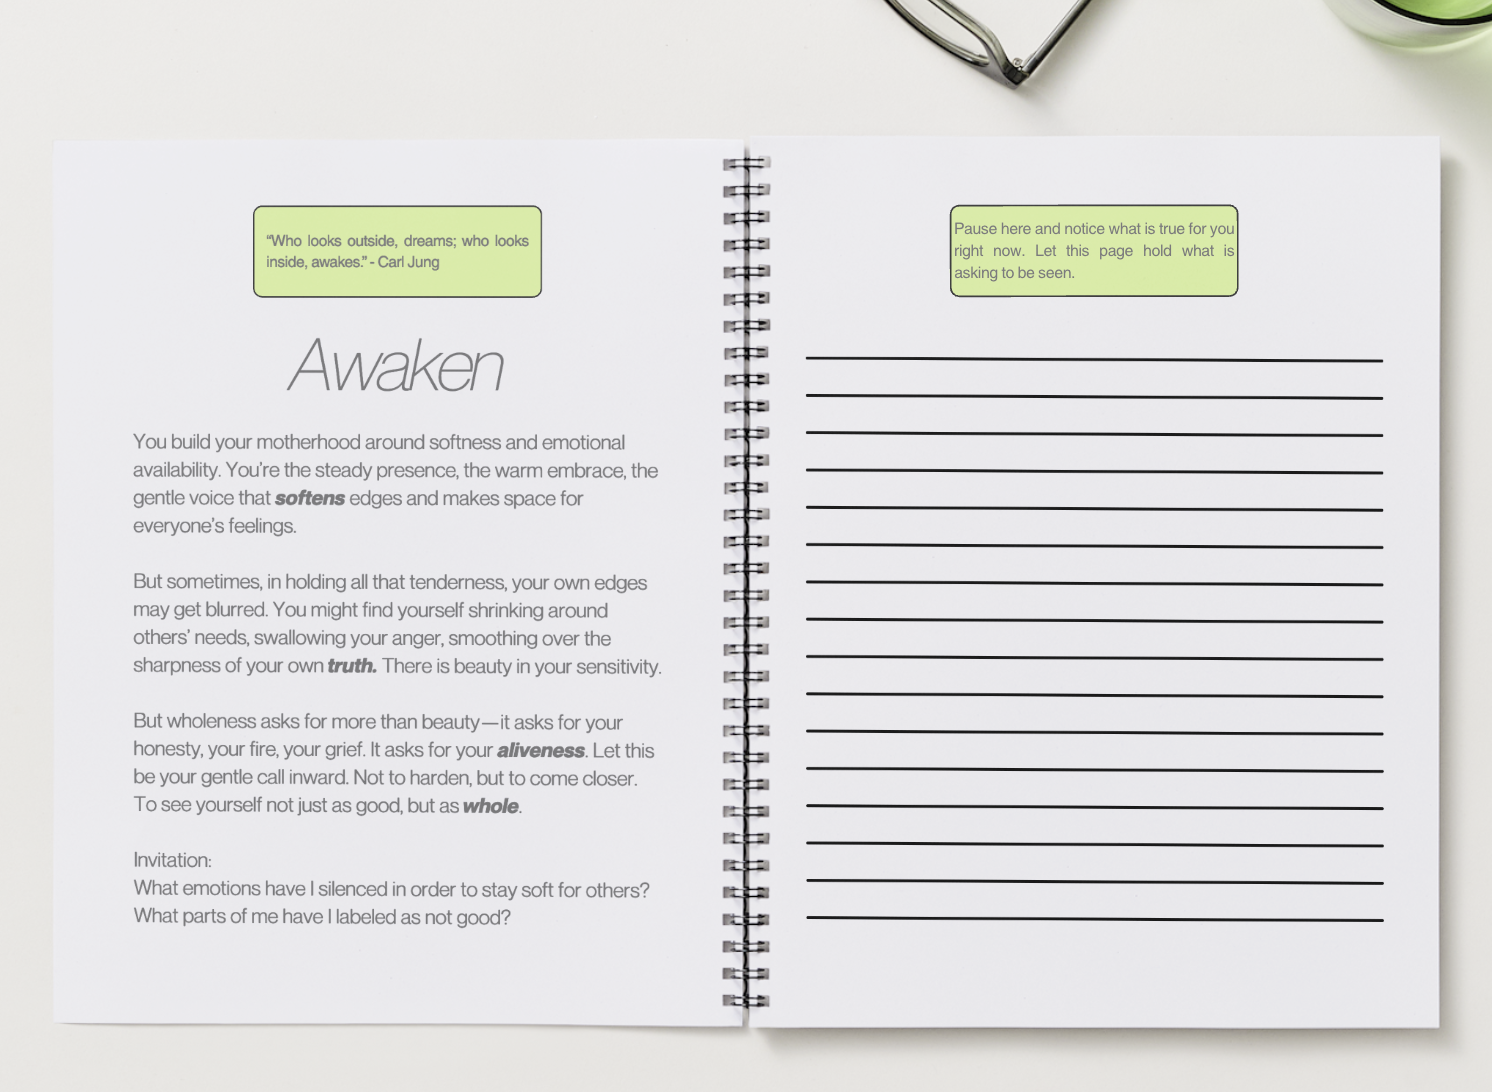 “Who looks outside, dreams; who looks
inside, awakes.” - Carl Jung
Awaken
You build your motherhood around softness and emotional
availability. You’re the steady presence, the warm embrace, the
gentle voice that softens edges and makes space for
everyone’s feelings.
But sometimes, in holding all that tenderness, your own edges
may get blurred. You might find yourself shrinking around
others’ needs, swallowing your anger, smoothing over the
sharpness of your own truth. There is beauty in your sensitivity.
But wholeness asks for more than beauty—it asks for your
honesty, your fire, your grief. It asks for your aliveness. Let this
be your gentle call inward. Not to harden, but to come closer.
To see yourself not just as good, but as whole.
Invitation:
What emotions have I silenced in order to stay soft for others?
What parts of me have I labeled as not good?
Pause here and notice what is true for you
right now. Let this page hold what is
asking to be seen.